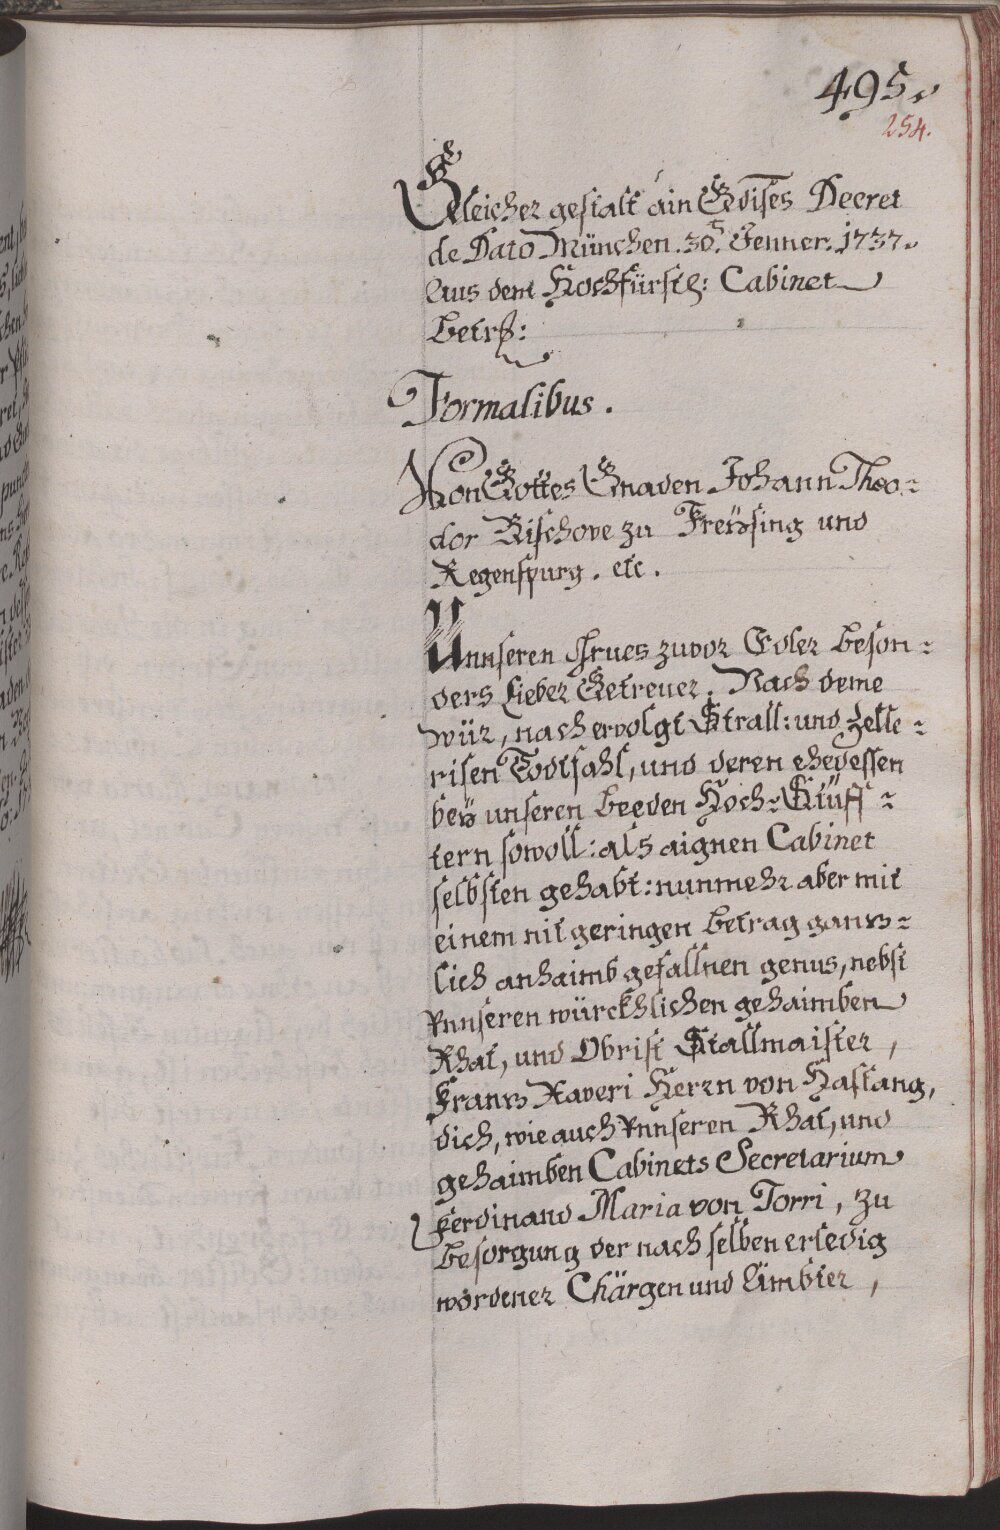 495.
254.
Gleicher gestalt ain Gdistes Decret
de Dato München. 30t. Jenner. 1737.
Aus dem Hochfürstl: Cabinet
betrf:
Formalibus.
Von Gottes Gnaden Johann Theo-
dor Bischove zu Freÿsing und
Regenspurg. etc.
Unnseren Grues zuvor Edler beson-
ders Lieber Getreuer. Nach deme
wür, nach ervolgt Strall: und Zelle-
risen Todtfahl, und deren ehedessen
beÿ unseren beeden Hoch-Stüff-
tern sowoll: als aignen Cabinet
selbsten gehabt: nunmehr aber mit
einem nit geringen betrag gantz-
lich anhaimb gefallnen genus, nebst
Unnseren würckhlichen gehaimben
Rhat, und Obrist Stallmaister,
Frantz Xaveri Herrn von Haslang,
dich, wie auch Unnseren Rhat, und
gehaimben Cabinets Secretarium
Ferdinand Maria von Torri, zu
besorgung der nach selben erledig
wordener Chärgen und Ämbter,